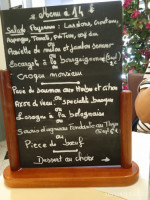 Menu à 14
Salade Paysanne : Lardons, croutons,
Asperges, Tomate,
ou
Assiette de melon et jambon serrano
ou
Escargots à la bourguignonne
ou
Croque monsieur
Pavé de saumon aux herbes et citron
ou
Axoa de veau spécialité basque
ou
Lasagne à la bolognaise
ou
Souris d'agneau fondante au Thym
ou
Pièce de bœuf
Dessert au choix